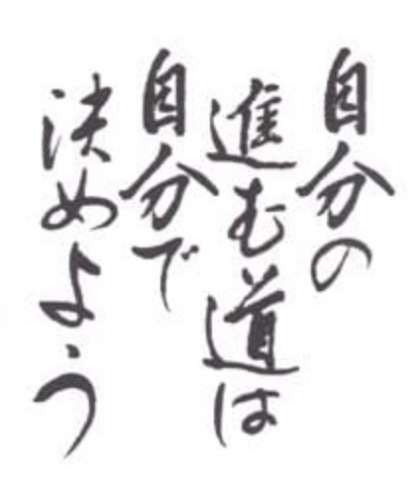 自分の
進む道は
自分で
決めよう